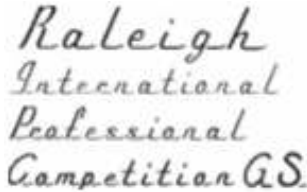 Raleigh
International
Professional
Competition GS